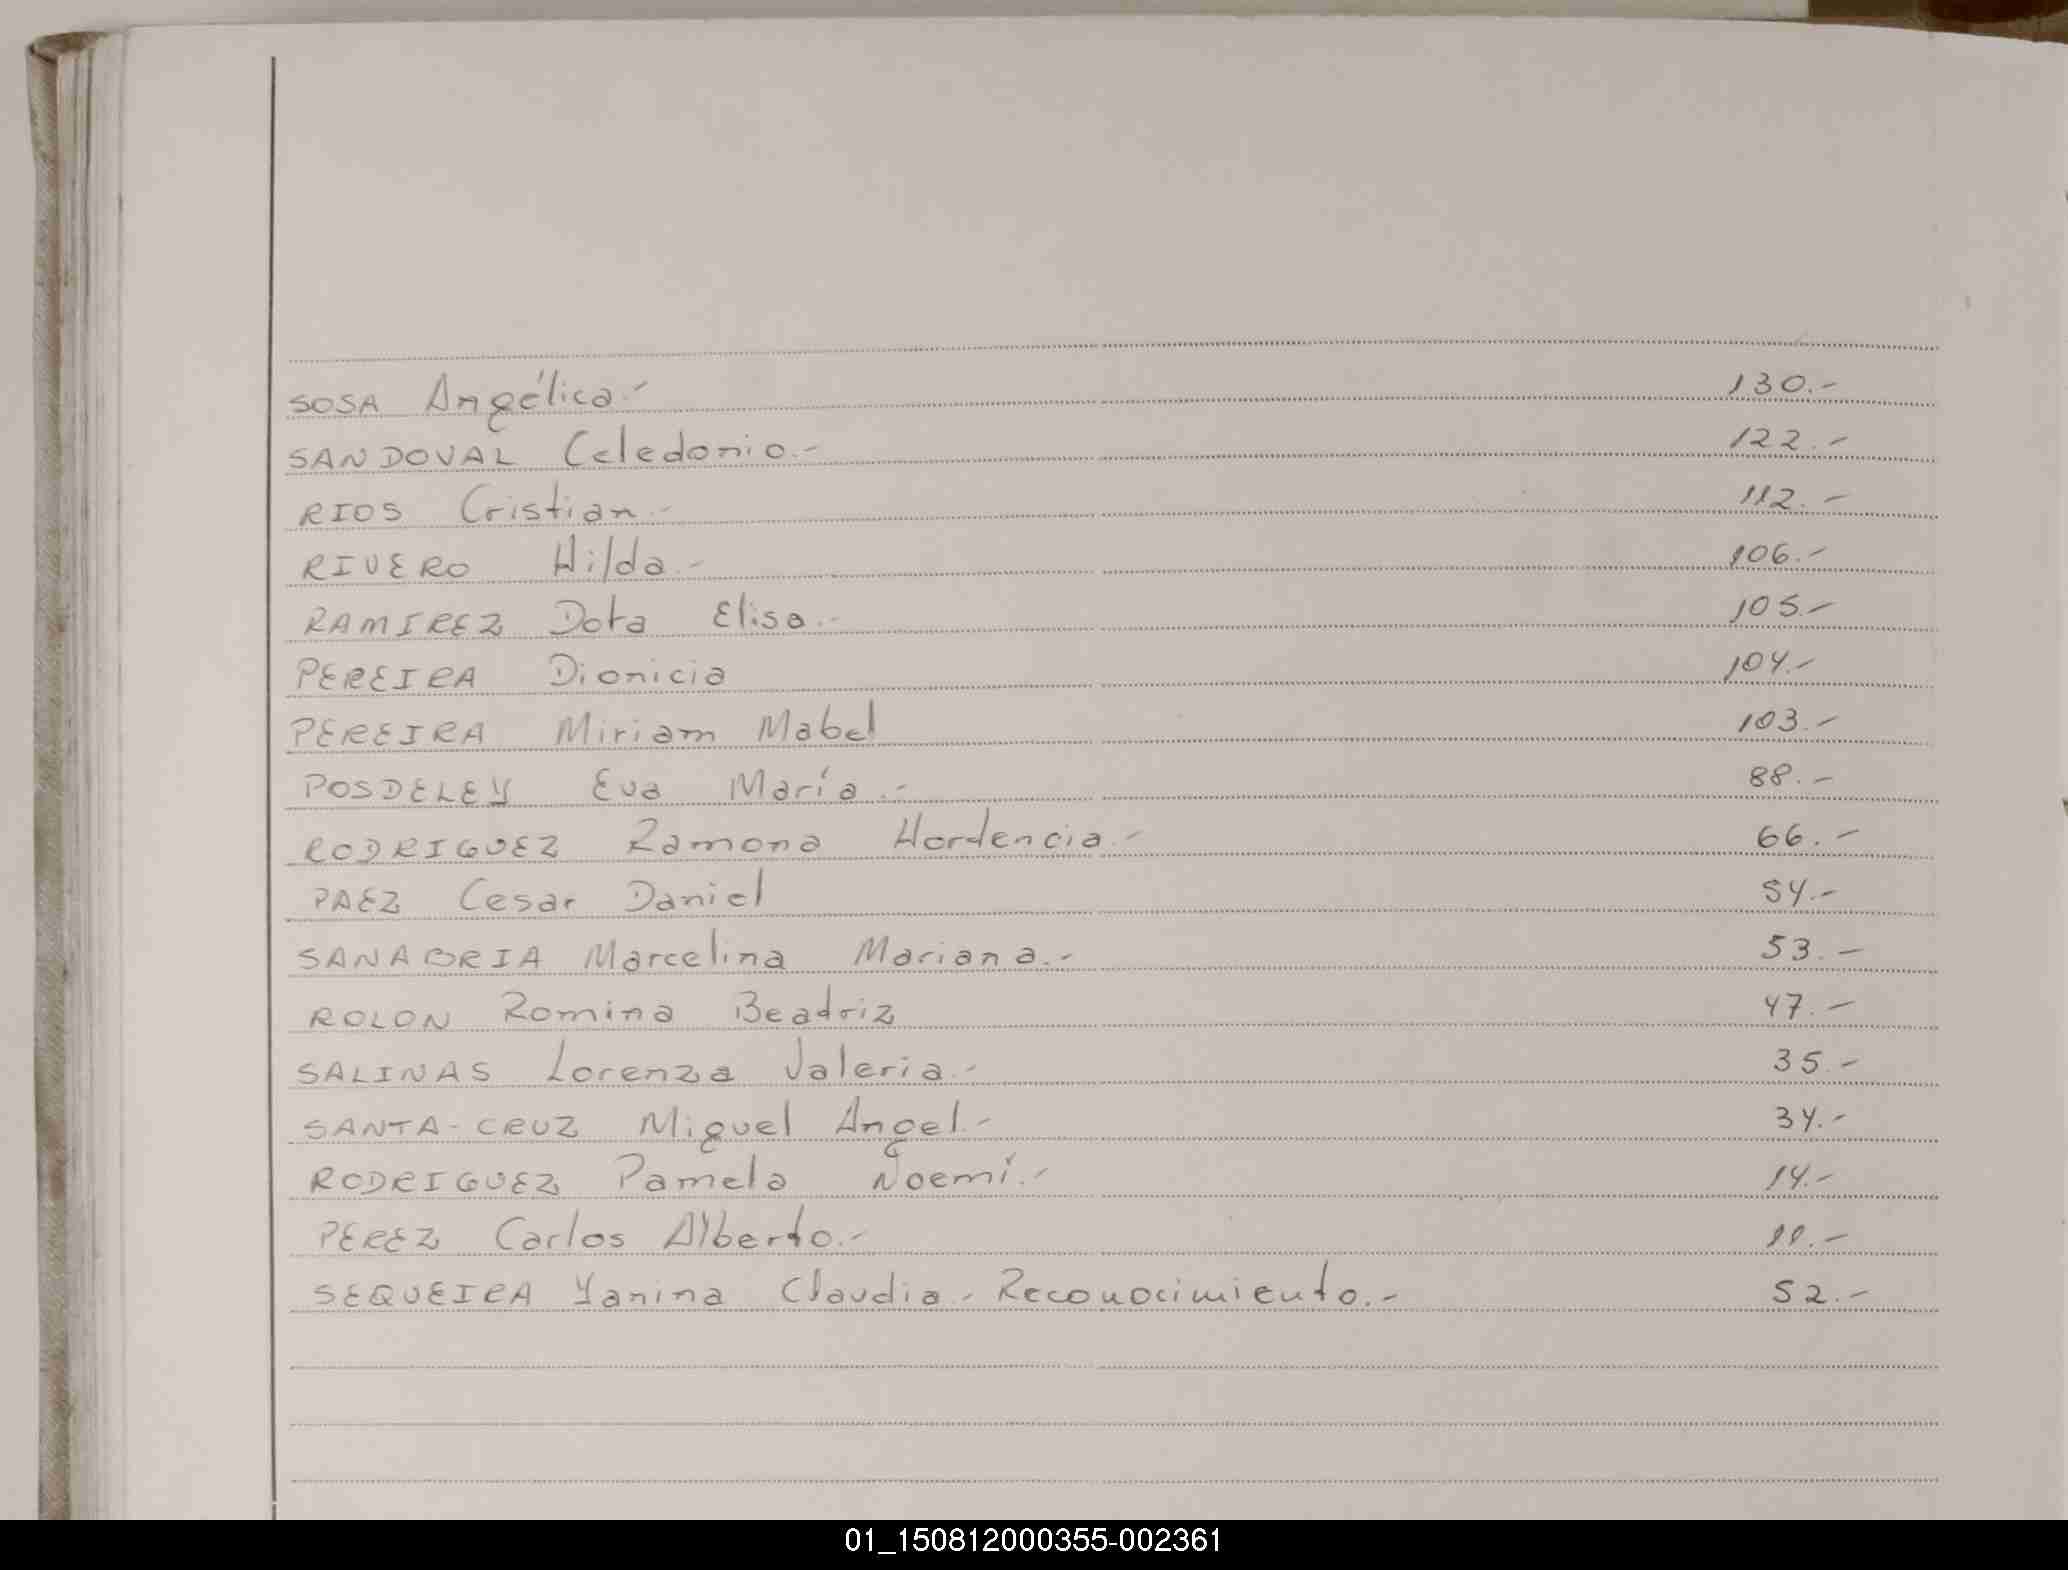 SOSA Angélica.- 130.-
SANDOVAL Celedonio.- 122.-
RIOS Cristian.- 112.-
RIVERO Hilda.- 106.-
RAMIREZ Dora Elisa.- 105.-
PEREIRA Dionicia 104.-
PEREIRA Miriam Mabel 103.-
POSDELEY Eva María.- 88.-
RODRIGUEZ Ramona Hortencia.- 66.-
PAEZ Cesar Daniel 54.-
SANABRIA Marcelina Mariana.- 53.-
ROLON Romina Beatriz 47.-
SALINAS Lorenza Valeria.- 35.-
SANTA-CRUZ Miguel Angel.- 34.-
RODRIGUEZ Pamela Noemí.- 14.-
PEREZ Carlos Alberto.- 11.-
SEQUEIRA Yanina Claudia.- Reconocimiento.- 52.-
01_150812000355-002361